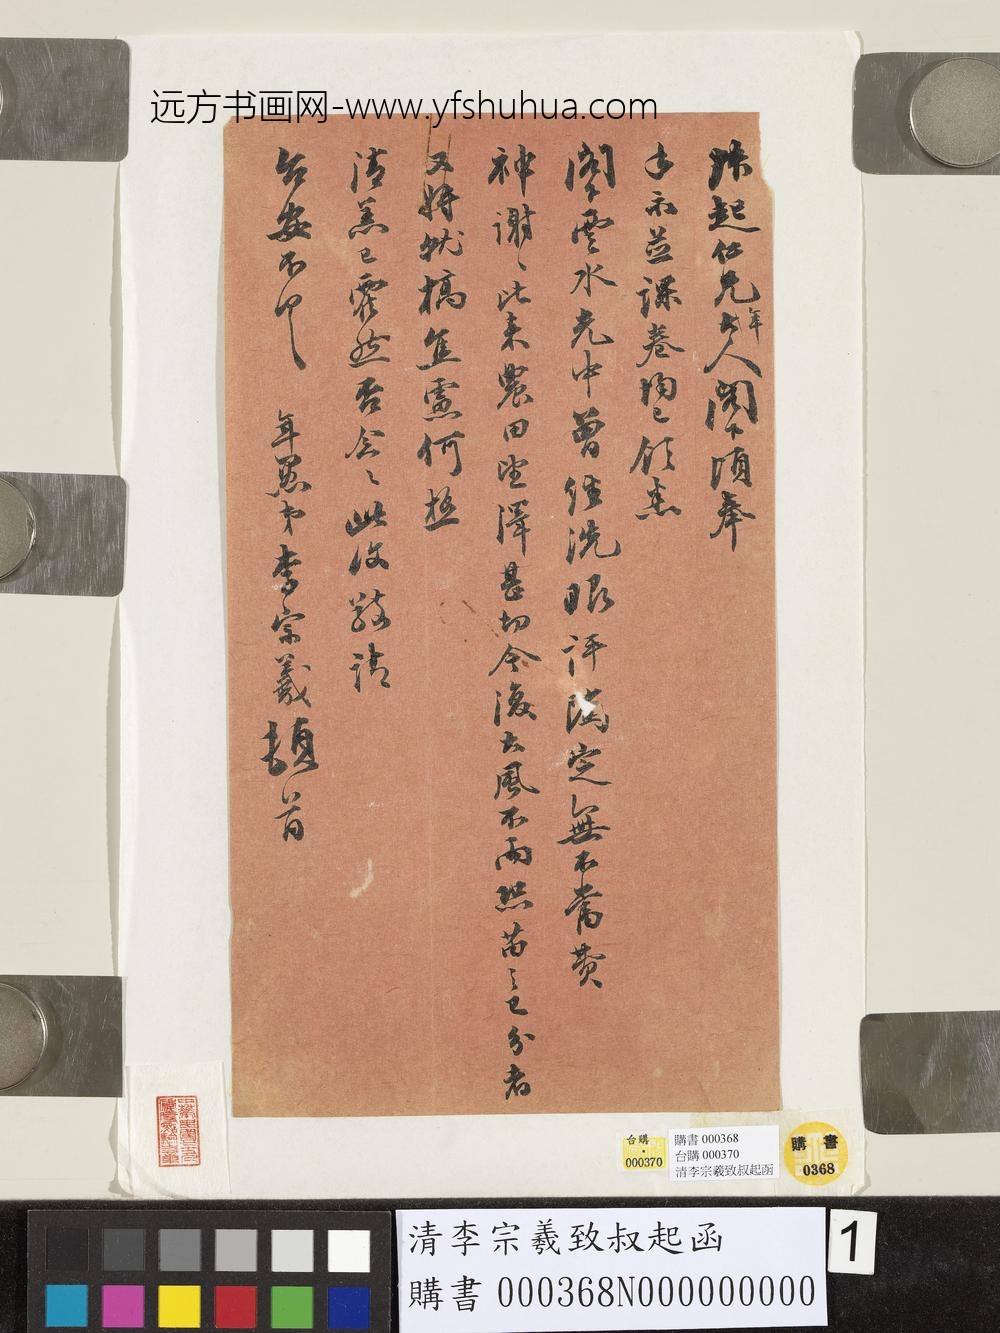 远方书画网-www.yfshuhua.com
叔起仁兄年大人閣下頃奉
手示並課卷均已領悉
閣下雲水光中曾經洗眼評隲定無不當費
神謝〻比來農田望澤甚切今復大風不雨然苗之已分者
又將就槁焦慮何極
清恙已霍然否念〻此復敬請
台安不一
年愚弟李宗羲頓首
台購
000370
購書 000368
台購 000370
清李宗羲致叔起函
購書
0368
清李宗羲致叔起函
購書 000368N000000000
1